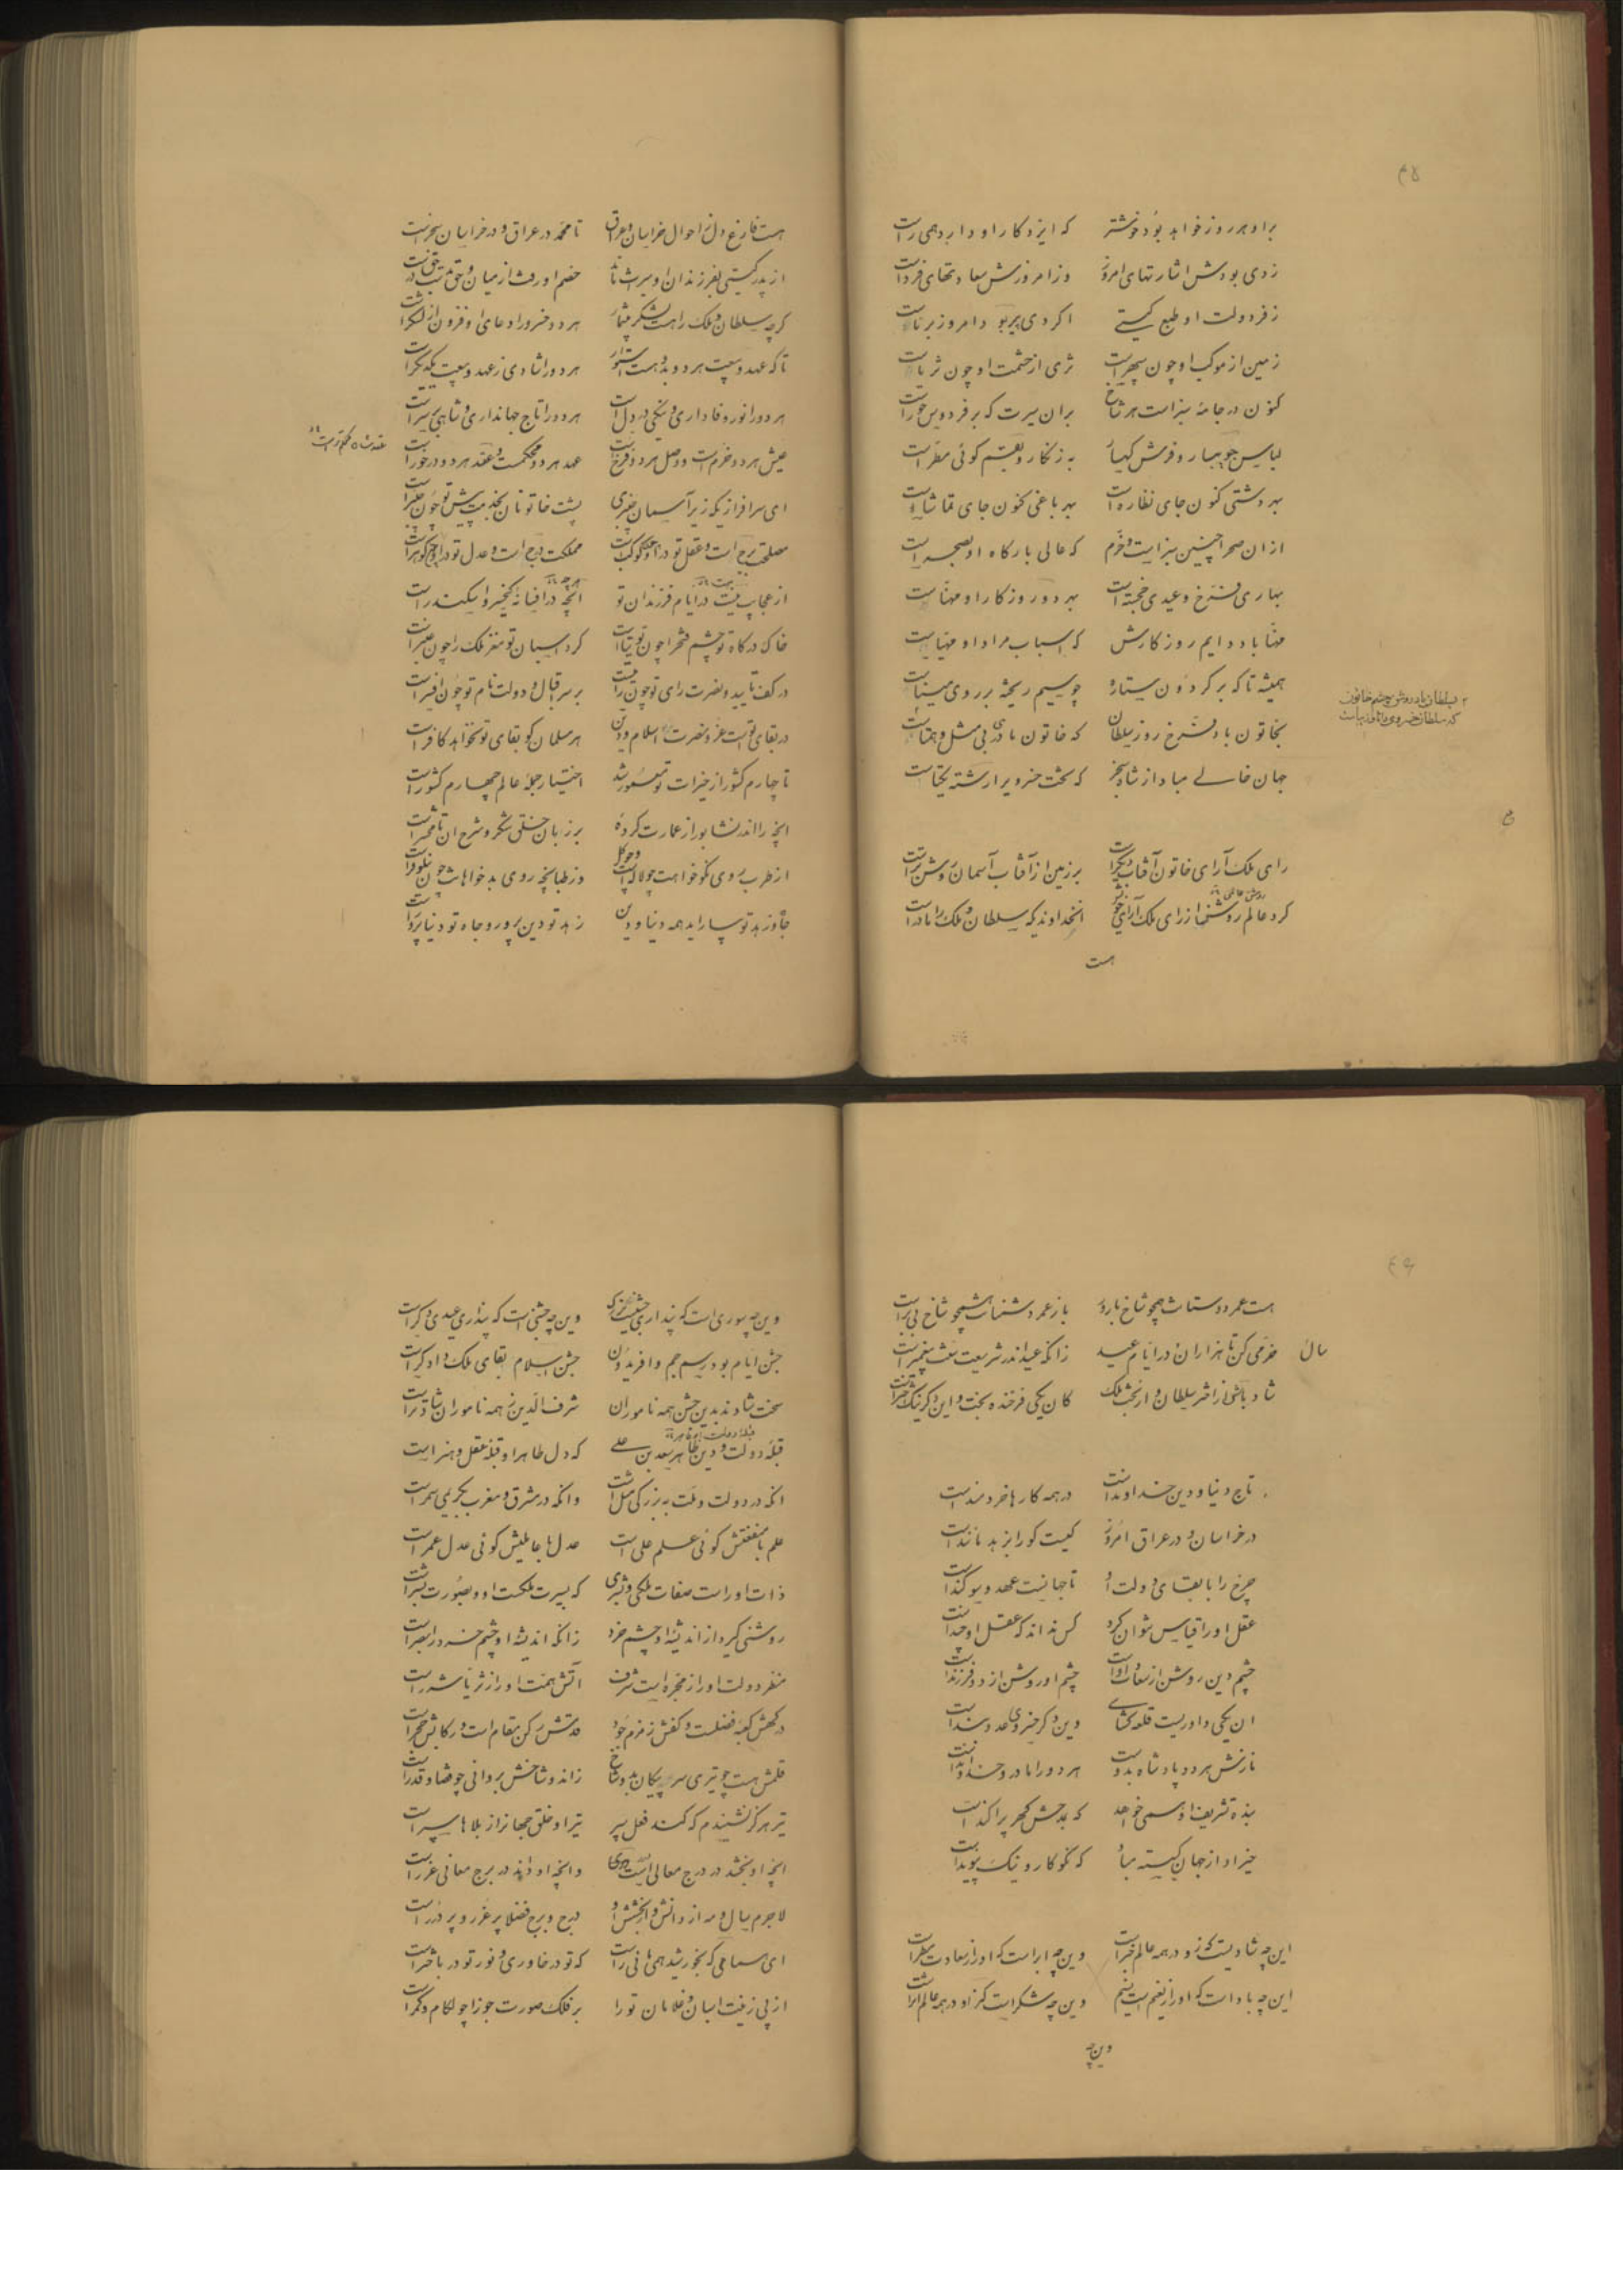 ۴۵
براو هر روز خواهد بود خوشتر که ایزد کار او دارد همی راست
ز دی بودش اشارتهای امروز وز امروزش سعادتهای فرداست
ز فر دولت او طبع گیتی اگر دی پیر بود امروز برناست
زمین از موکب او چون سپهر است ثری از حشمت او چون ثریاست
کنون در جامهٔ سبز است هر شاخ بران سیرت که بر فردوس حوراست
لباس جویبار و فرش کهسار
بهر دشتی کنون جای نظاره است بهر باغی کنون جای تماشاست
ازان صحرا چنین سبز است و خرم که عالی بارگاه او بصحراست
بهاری فرخ و عیدی خجسته است بهر دو روزگار او مهناست
مهنا باد دایم روزگارش که اسباب مراد او مهیاست
همیشه تا که بر گردون ستاره چو سیم ریخته بر روی میناست
بخاتون باد فرخ روز سلطان که خاتون مادری بی مثل و همتاست
بسلطان باد روشن چشم خاتون
که سلطان خسروی
جهان خالی مباد از شاه سنجر که تخت خسروی را رشته یکتاست
رای ملک آرای خاتون آفتاب دیگر است بر زمین از آفتاب آسمان روشن‌تر است
کرد عالم روشن از رای ملک آرای خویش آنخداوندی که سلطان و ملک را مادر است
هست
هست فارغ دل ز احوال خراسان و عراق تا محمد در عراق و در خراسان سنجر است
از پدر گیتی بفرزندان او میراث ماند خصم او رفت از میان و حق
گرچه سلطان و ملک را هست لشکر بیشمار هر دو خسرو را دعای او فزون از لشکر است
تا که عهد و بیعت هر دو بدو هست استوار هر دو را شادی ز عهد و بیعت یکدیگر است
هر دو را نور وفاداری و نیکی در دل است هر دو را تاج جهانداری و شاهی بر سر است
عیش هر دو خرم است و وصل هر دو فرخ است عهد هر دو محکمست و عقد هر دو درخور است
ای سرافرازی که زیر آسمان چنبری پشت خاتونان بخدمت پیش تو چون چنبر است
مصلحت برج است و عقل تو درو چون کوکب است مملکت درج است و عدل تو درو چون گوهر است
از عجایب نیست در ایام فرزندان تو آنچه در افسانهٔ کیخسرو و اسکندر است
خاک درگاه تو چشم فخر را چون توتیاست گرد اسبان تو مغز ملک را چون عنبر است
در کف تایید و نصرت رای تو چون رایتست بر سر اقبال و دولت نام تو چون افسر است
در بقای تست عز و نصرت اسلام و دین هر مسلمان کو بقای تو نخواهد کافر است
تا چهارم کشور از خیرات تو معمور شد اختیار جملهٔ عالم چهارم کشور است
آنچه را اندر نشابور از عمارت کرده بر زبان خلق شکر و شرح آن تا محشر است
از طرب روی نکوخواهت چو لاله است وز طپانچه روی بدخواهانت چون نیلوفر است
جاه و زهد تو بیاراید همه دنیا و دین زهد تو دین پرور و جاه تو دنیا پرور است
۴۶
هست عمر دوستانت همچو شاخ بارور باز عمر دشمنانت همچو شاخ بی بر است
خرمی کن تا هزاران در ایام عید زانکه عید اندر شریعت سنت پیغمبر است
سال
شاد باش از اختر سلطان و از بخت ملک کان یکی فرخنده بخت و این دگر نیک اختر است
تاج دنیا و دین خداوند است در همه کارها خردمند است
در خراسان و در عراق امروز کیست کو را بزهد مانند است
چرخ را با بقای دولت او تا جهانست عهد و سوگند است
عقل او را قیاس نتوان کرد کس نداند که عقل او چند است
چشم دین روشن از سعادت اوست چشم او روشن از دو فرزند است
آن یکی داوریست قلعه گشای وین دگر خسروی عدو بند است
نازش هر دو پادشاه بدوست هر دو را مادر و خداوند است
بنده تشریف او همی خواهد که بمدحش گهر پراکند است
جز او از جهان گسسته مباد که نکوکار و نیک پیوند است
این چه شادیست کزو در همه عالم خبر است وین چه ابر است که او را ز سعادت مطر است
این چه باد است که او را ز نعیم است نسیم وین چه شکر است کز او در همه عالم اثر است
وین چه
وین چه سوری است که پنداری جشنی بزرگ وین چه جشنیست که پنداری عیدی دگر است
جشن ایام بود رسم جم و افریدون جشن اسلام بقای ملک دادگر است
سخت شادند بدین جشن همه ناموران شرف الدین ز همه ناموران شادتر است
قبلهٔ دولت و دین طاهر سعد بن علی که دل طاهر او قبلهٔ عقل و هنر است
آنکه در دولت و ملت به بزرگی مثل است وانکه در مشرق و مغرب بکریمی سمر است
علم با منفعتش گوئی علم علی است عدل با عاملیش گوئی عدل عمر است
ذات او راست صفات ملکی و بشری که بسیرت ملکست او و بصورت بشر است
روشنی گیرد از اندیشهٔ او چشم خرد زانکه اندیشهٔ او چشم خرد را بصر است
مغز دولت او را ز مجمرهٔ است شرف آتش همت او را ز ثریا شرر است
درگهش کعبهٔ فضلست و کفش زمزم جود خدمتش رکن مقام است و رکابش حجر است
قلمش هست چو تیری سر پیکان بدو شاخ زان دو شاخش بروانی چو قضا و قدر است
تیر هرگز نشنیدم که کند فعل سپر تیر او خلق جهان را ز بلاها سپر است
آنچه او بخشد در درج معالی است درر وانچه او داند در برج معانی غرر است
لاجرم سال و مه از دانش و از بخشش او درج و برج فضلا پر غرر و پر درر است
ای سمائی که بخورشید همی مانی راست که تو در خاوری و نور تو در باختر است
از پی زینت اسبان و غلامان تو را بر فلک صورت جوزا چو لگام و کمر است